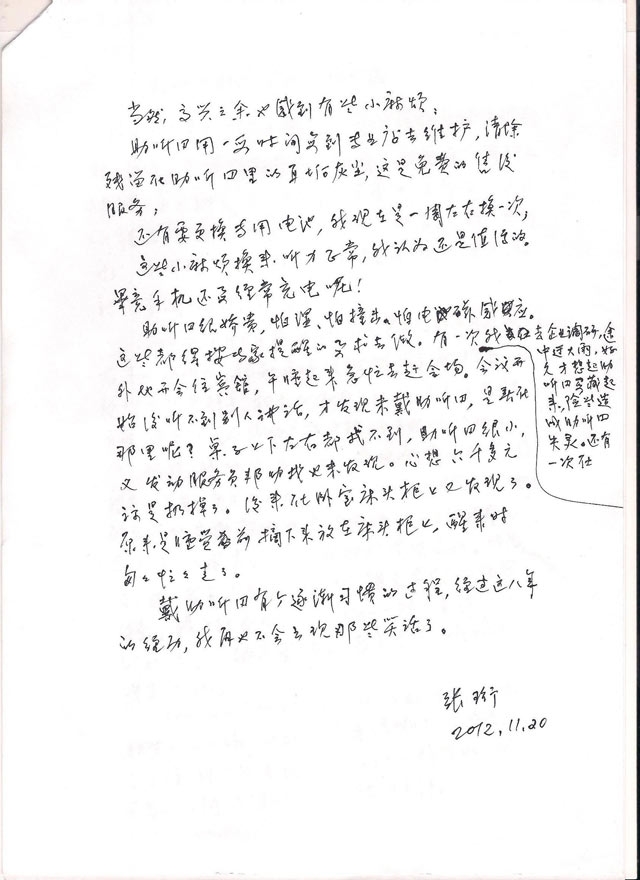 当然，高兴之余也感到有些小麻烦：
助听器用一段时间要到专业店去维护，清除
残留在助听器里的耳垢灰尘，这是免费的售后
服务；
还有要更换专用电池，我现在是一周左右换一次，
这些小麻烦换来听力正常，我认为还是值得的。
毕竟手机还要经常充电呢！
助听器很娇贵，怕湿、怕撞击、怕电磁感应。
这些都得按专家提醒的要求去做。有一次我在去企业调研，途
中遇大雨，好
久才想起助
听器要藏起
来，险些造
成助听器
失灵。还有
一次在
外地开会住宾馆，午睡起来急忙去赶会场。会议开
始后听不到别人讲话，才发现未戴助听器，是丢在
那里呢？桌子上下左右都找不到，助听器很小，
又发动服务员帮助找也未发现。心想六千多元
该是扔掉了。后来在卧室床头柜上又发现了。
原来是睡觉前摘下来放在床头柜上，醒来时
匆匆忙忙走了。
戴助听器有个逐渐习惯的过程，经过这八年
的经历，我再也不会出现那些笑话了。
张
2012.11.20